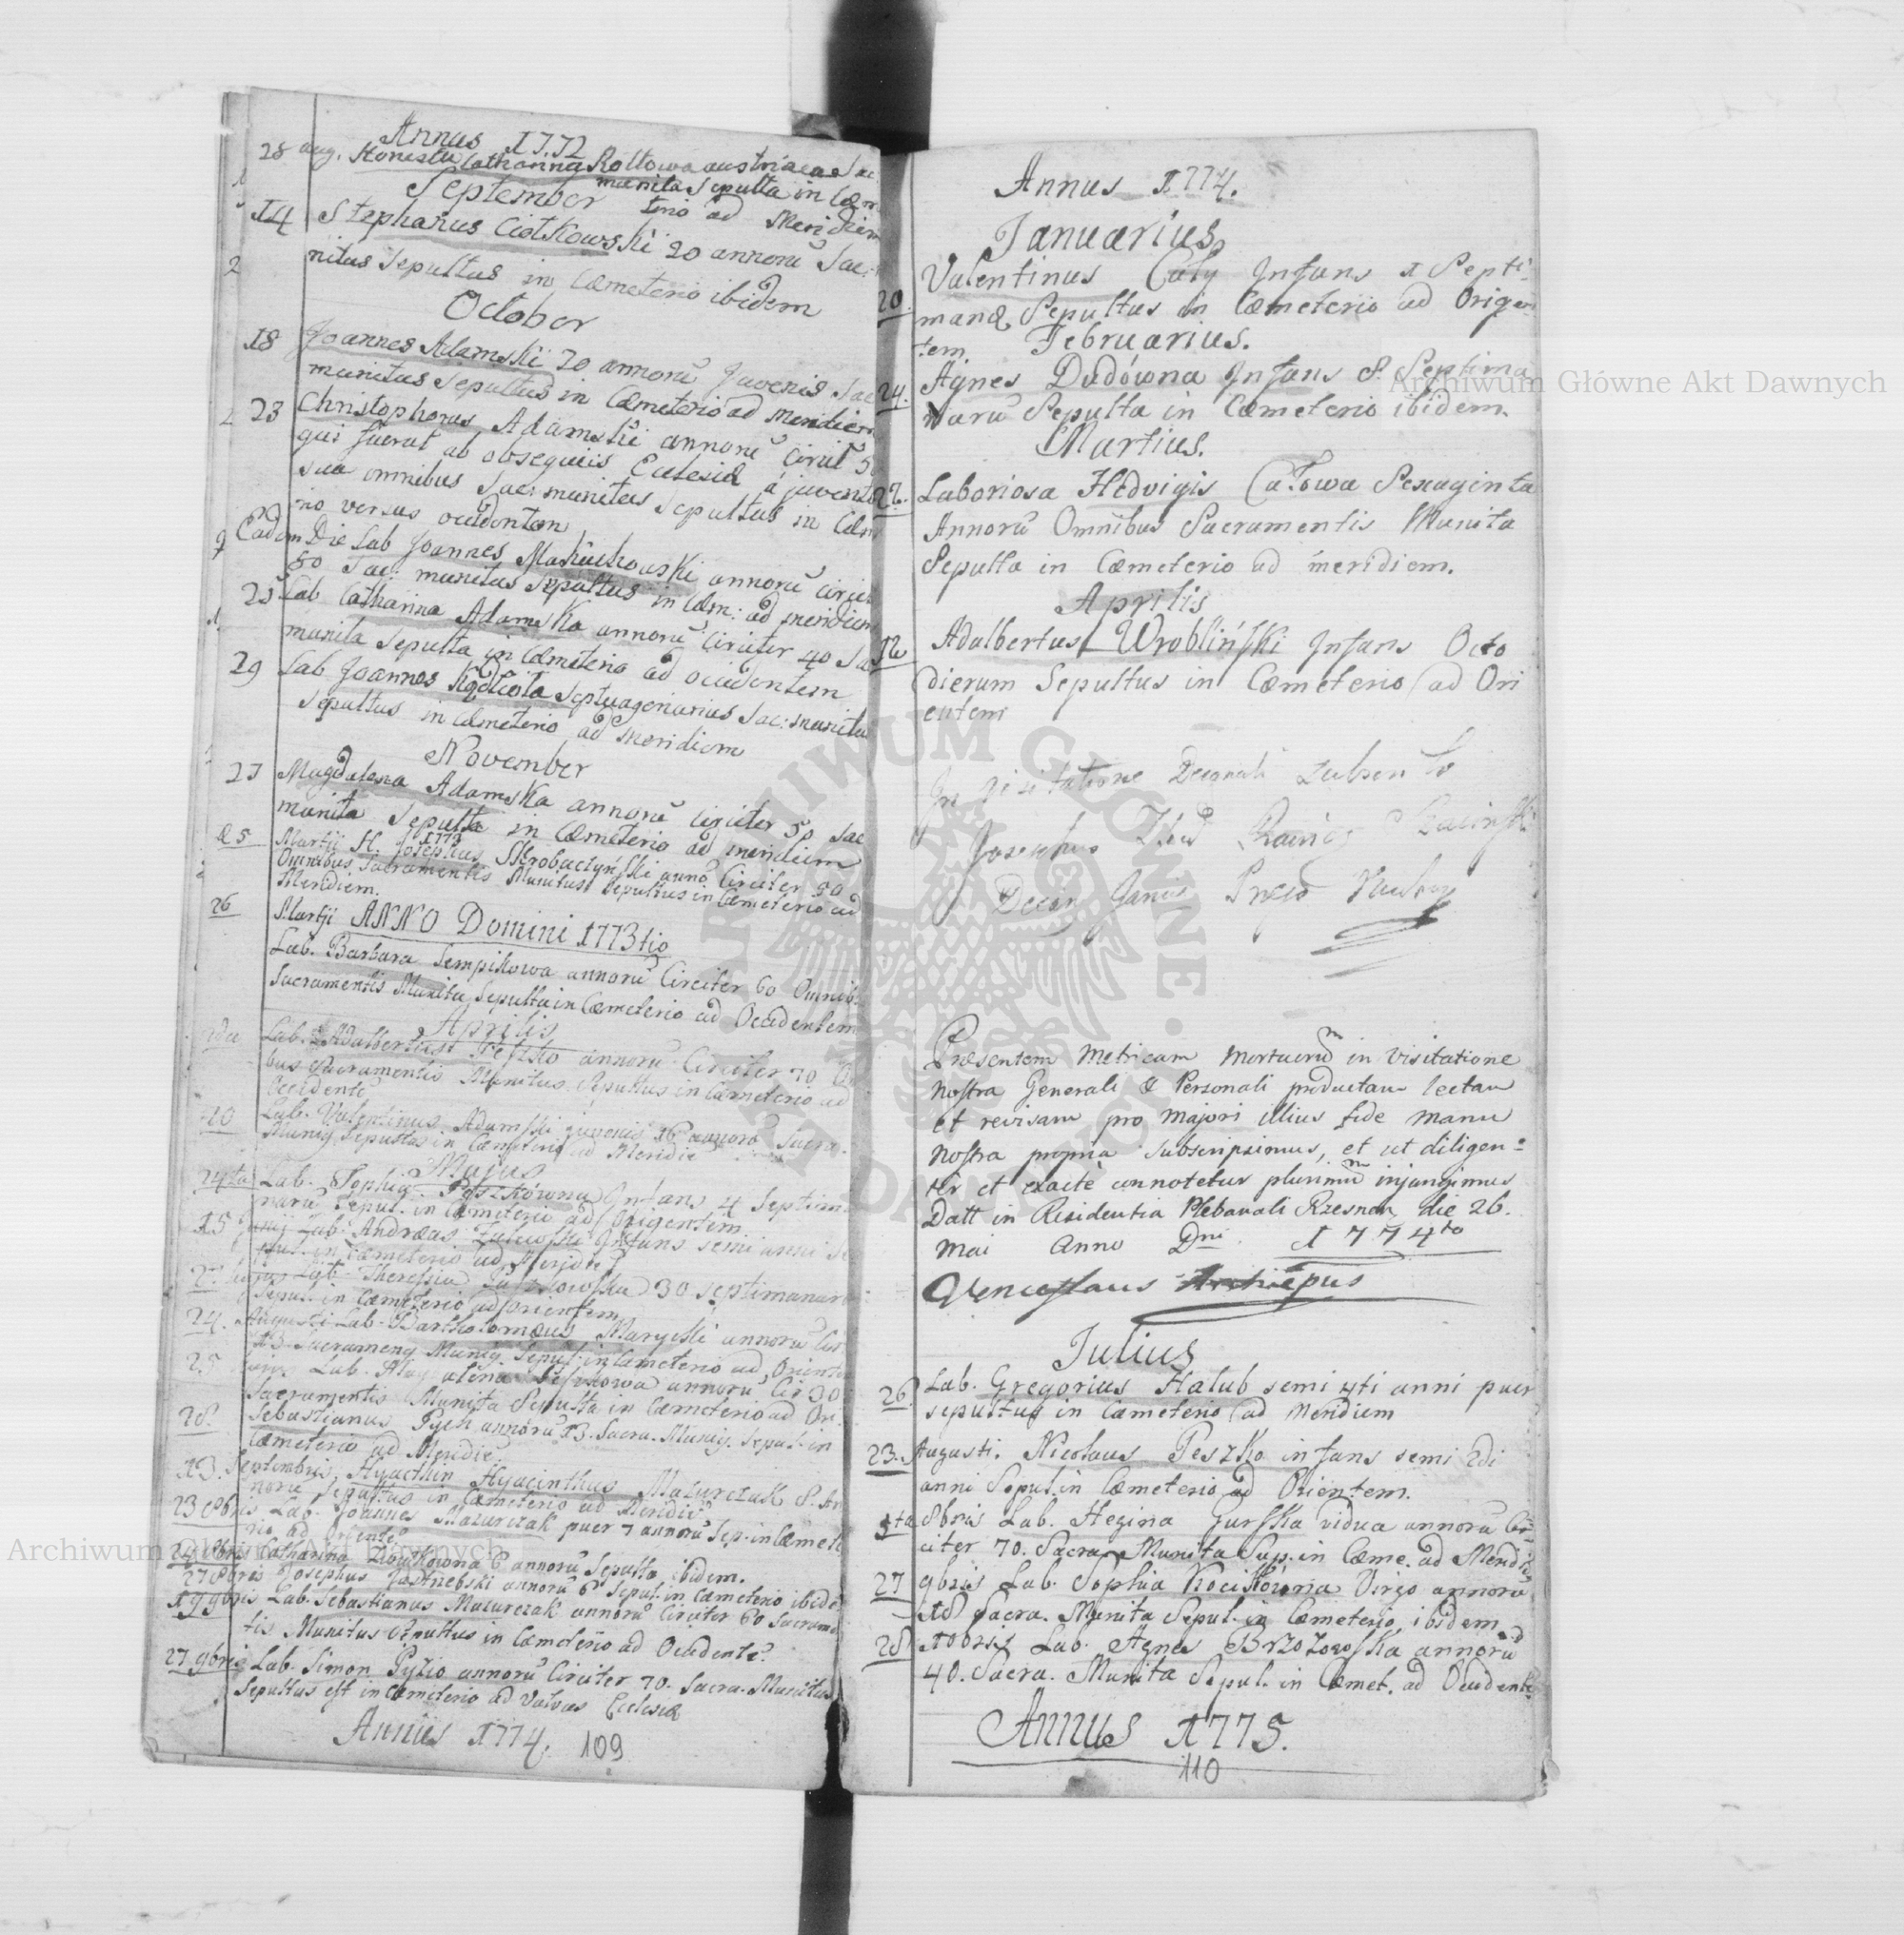 Annus 1772
28 aug. Honesta Catharina Roltowa austriacae Sac
munita Sepulta in Cœm
September terio ad Meridiem
14 Stephanus Ciotkowski 20 annorũ Sac:
nitus Sepultus in Cœmeterio ibidem
October
18 Joannes Adamski 20 annorũ Juvenis Sac
munitus Sepultus in Cœmeterio ad Meridiem
23 Christophorus Adamski annorũ Circit 50
qui fuerat ab obsequiis Eclesiæ a juventu
sua omnibus Sac: munitus Sepultus in Cœm
rio versus occidentem
Eadem Die Lab Joannes annorũ circit
50 Sac: munitus Sepultus in Cœm: ad meridiem
25 Lab Catharina Adamska annorũ Circiter 40 Sac
munita Sepulta in Cœmeterio ad occidentem
29 Lab Joannes Septuagenarius Sac: munitu
Sepultus in Cœmeterio ad meridiem
November
27 Magdalena Adamska annorũ circiter 50 Sac
munita Sepulta in Cœmeterio ad meridiem
1773
25 Martji H. Josephus Skrobaczyński anno Circiter 50
Omnibus Sacramentis Munitus Sepultus in Cœmeterio ad
Meridiem.
26 Martji ANNO Domini 1773tio
Lab. Barbara Sempikowa annorũ Circiter 60 Omnib
Sacramentis Munita Sepulta in Cœmeterio ad Occidentem
Aprilis
2da Lab. Adalbertus Peszko annorũ Circiter 70
bus Sacramentis Munitus Sepultus in Cœmeterio ad
Occidentẽ
20 Lab. Valentinus Adamski juvenis 16 annorũ Sacra.
Munig Sepultus in Cœmeterio ad Meridiẽ
Majus
24ta Lab. Sophia Peszkówna Infans 4 Septim
narũ Sepul. in Cœmeterio ad Origentem
15 Junij Lab. Andræas Infans semi anni Se
pul. in Cœmeterio ad Meridiẽ
27 hujus Lab. Theressia 30 septimanarũ
Sepul. in Cœmeterio ad orientem
24. Augusti Lab. Bartholomœus Marycki annorũ Cir
Sacrameng Munig. Sepul. in Cœmeterio ad Orientẽ
25 hujus Lab. Magdalena annorũ Cir 30
Sacramentis Munita Sepulta in Cœmeterio ad Ori.
28. Sebastjanus Pych annorũ 13. Sacra. Munig. Sepul. in
Cœmeterio ad Meridiẽ.
13. Septembris. Hyacthin Hyacinthus Mazurczak 8. An
norũ Sepultus in Cœmeterio ad Meridiẽ
23 8bris Lab. Joannes Mazurczak puer 7 annorũ Sep. in Cœmete
rio ad Orientẽ
24 8bris Catharina 6 annorũ Sepulta ibidem.
27 8bris Josephus Jastrzebski annorũ 6 Sepul. in Cœmeterio ibide
19 9bris Lab. Sebastianus Mazurczak annorũ Circiter 60 Sacramẽ
tis Munitus Sepultus in Cœmeterio ad Occidentẽ
27 9bris Lab. Simon Pyzio annorũ Circiter 70. Sacra. Munitus
Sepultus est in Cœmeterio ad Valvas Eclesiæ
Annus 1774.
109
Annus 1774.
Januarius
20. Valentinus Cały Infans 1 Septi
manæ Sepultus in Cœmeterio ad Origen
tem. Februarius.
24. Agnes Dudówna Infans 8 Septima
narũ Sepulta in Cœmeterio ibidem.
Martius.
22. Laboriosa Hedvigis Całowa Sexaginta
Annorũ Omnibus Sacramentis Munita
Sepulta in Cœmeterio ad meridiem.
Aprilis
12 Adalbertus Wrobliński Infans Octo
dierum Sepultus in Cœmeterio ad Ori
entem
In Visitatione Decanali
Josephus
Præsentem Metricam Mortuorũm in Visitatione
Nostra Generali & Personali productam lectam
et revisam pro majori illius fide manu
Nostra propria Subscripsimus, et ut diligen=
ter et exacte connotetur plurimũm injungimus
Datt in Residentia Plebanali Rzesnan die 26.
Mai Anno Dni. 1774to
Venceslaus Archiepus
Julius
26 Lab. Gregorius Halub semi 4ti anni puer
sepultus in Cœmeterio ad Meridiem
23. Augusti. Nicolaus Peszko infans semi 2di
anni Sepul. in Cœmeterio ad Orientem.
5ta 8bris Lab. Hegina Gurska vidua annorũ Cir
citer 70. Sacra. Munita Sup. in Cœme. ad Meridiẽ
27 9bris Lab. Sophia Kocikówna Virgo annorũ
18 Sacra. Munita Sepul. in Cœmeterio ibidem
28 10bris Lab. Agnes Brzozowska annorũ
40. Sacra. Munita Sepul. in Cœmet. ad Occidentẽ
Annus 1775.
110
Archiwum Główne Akt Dawnych
Archiwum Główne Akt Dawnych
ARCHIWUM GŁÓWNE AKT DAWNYCH